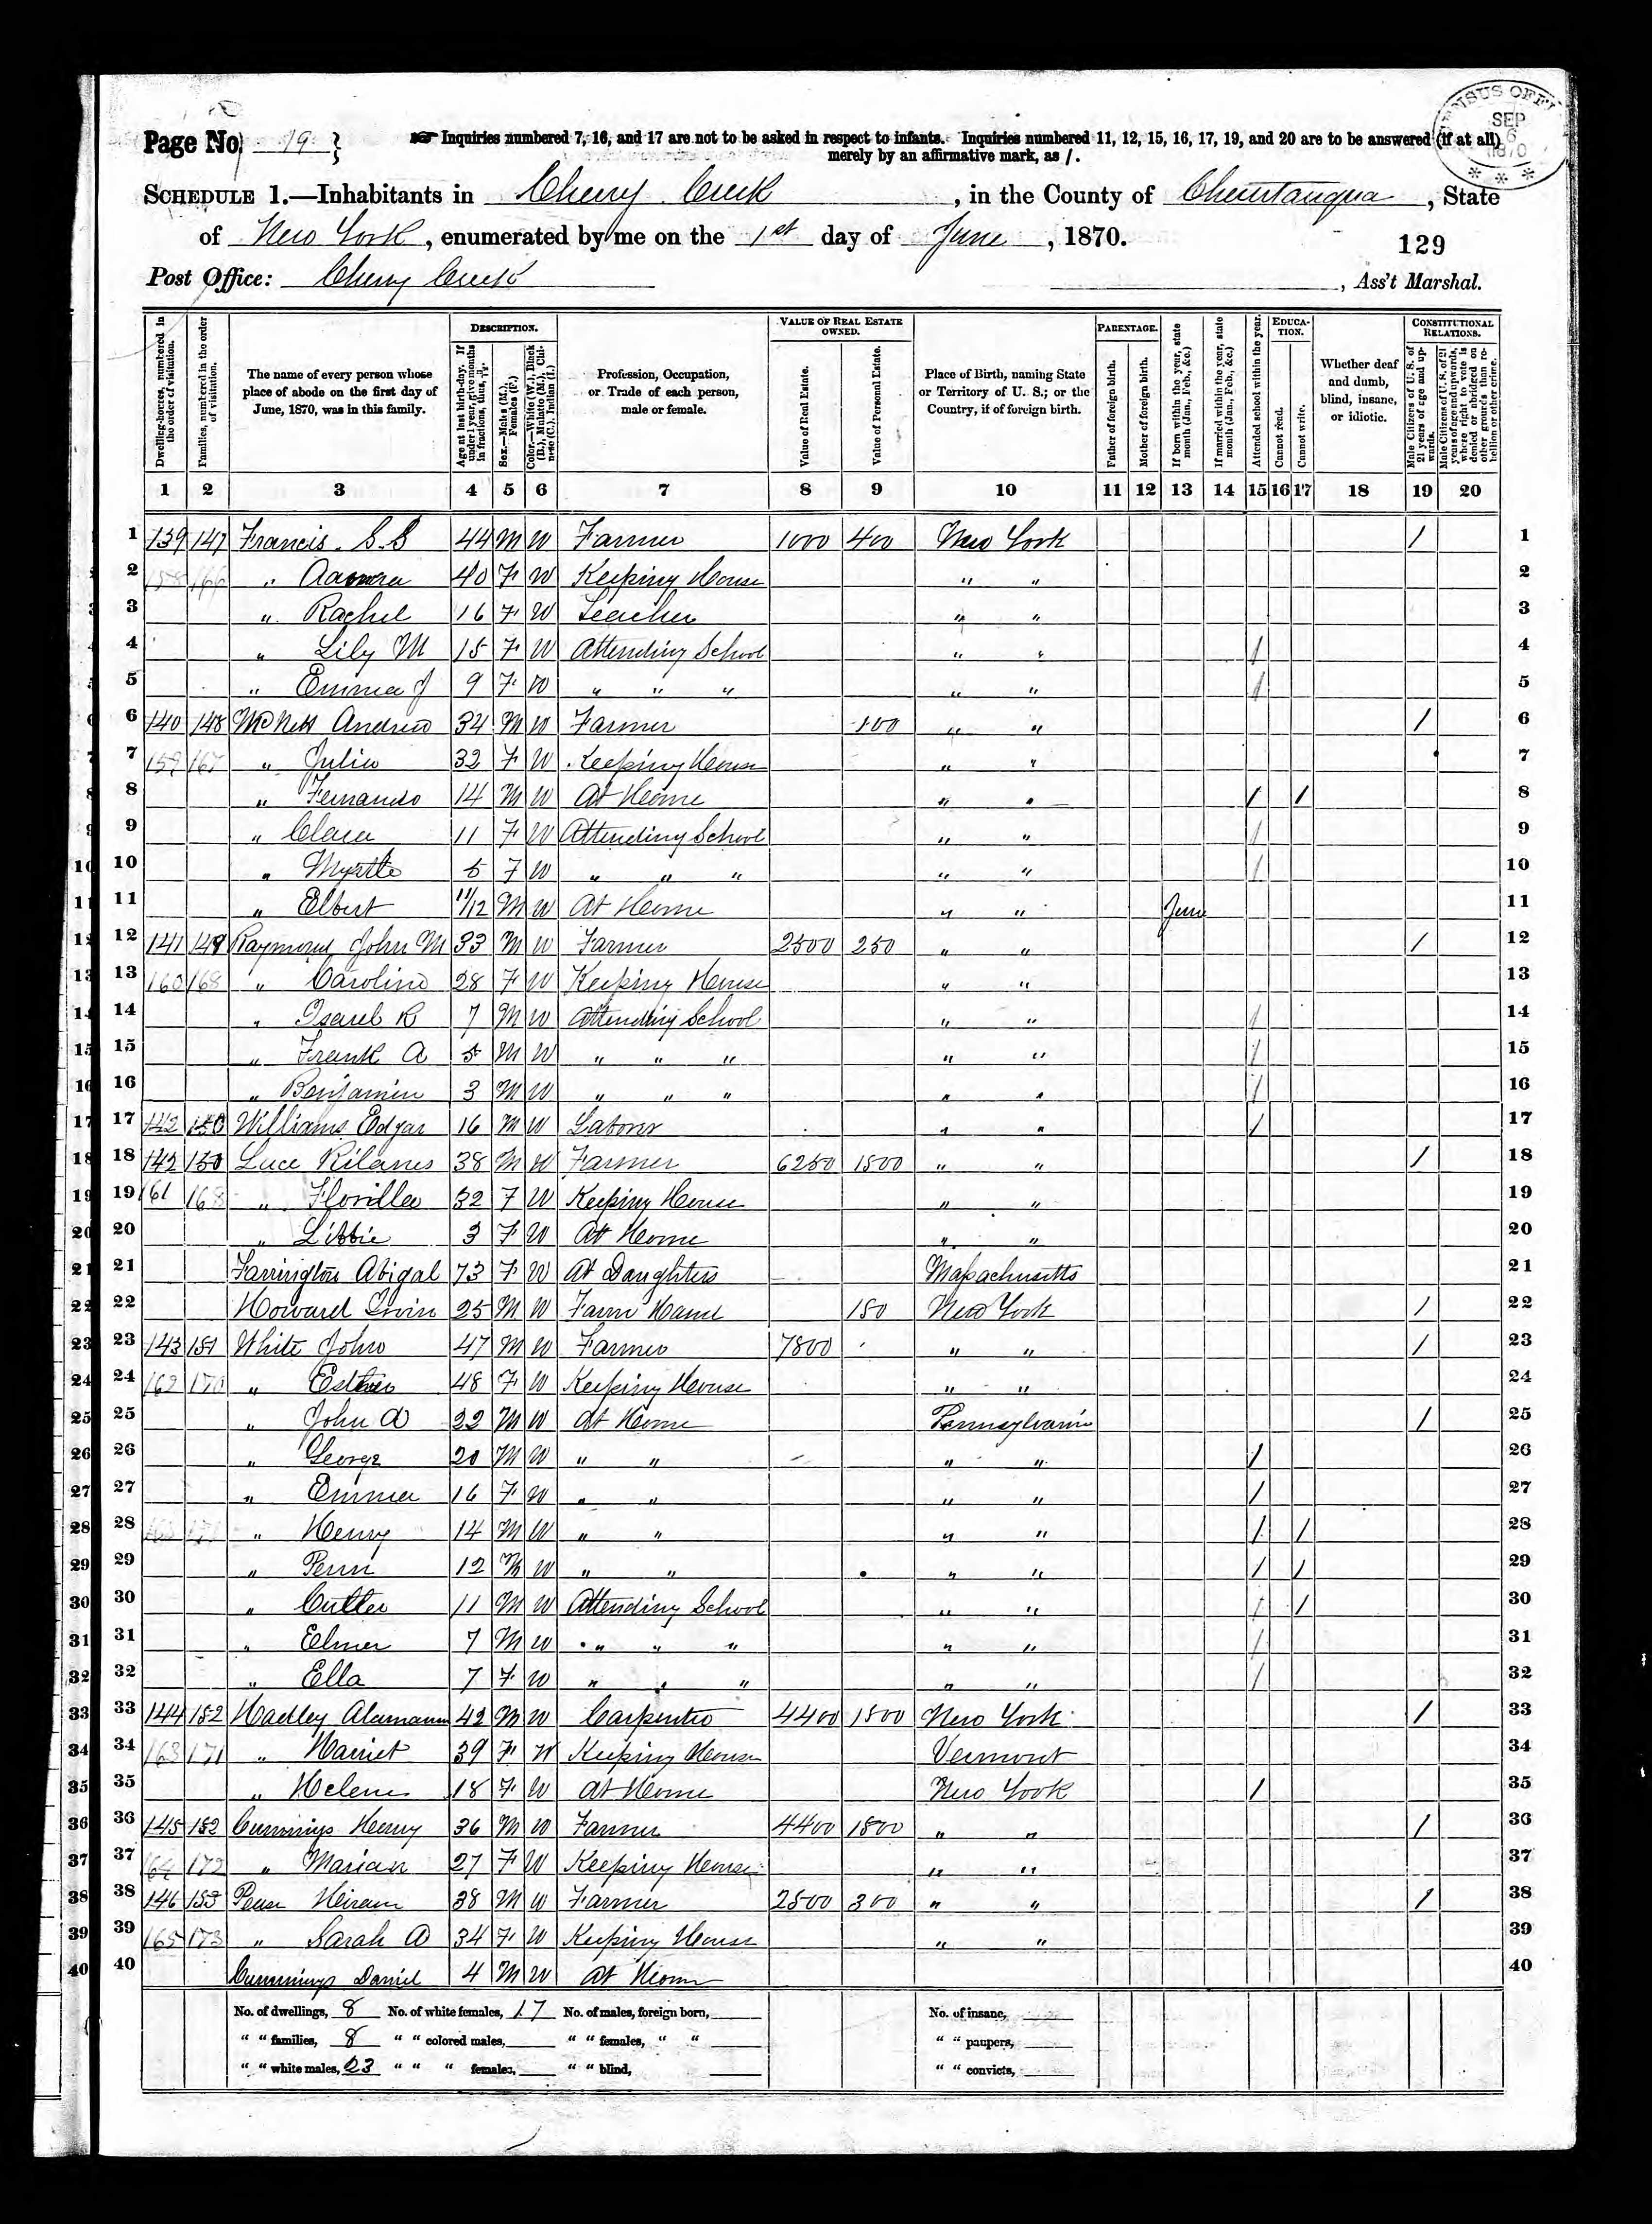 Page No. 19 } ☞ Inquiries numbered 7, 16, and 17 are not to be asked in respect to infants. Inquiries numbered 11, 12, 15, 16, 17, 19, and 20 are to be answered (if at all) merely by an affirmative mark, as /.
CENSUS OFFI SEP 6 1870 * * *
SCHEDULE 1.—Inhabitants in Cherry Creek, in the County of Cheutauqua, State
of New York, enumerated by me on the 1st day of June, 1870. 129
Post Office: Cherry Creek , Ass't Marshal.
Dwelling-houses, numbered in the order of visitation.
Families, numbered in the order of visitation.
The name of every person whose place of abode on the first day of June, 1870, was in this family.
DESCRIPTION.
Age at last birth-day. If under 1 year, give months in fractions, thus, 3/12.
Sex.—Males (M.), Females (F.)
Color.—White (W.), Black (B.), Mulatto (M.), Chinese (C.), Indian (I.)
Profession, Occupation, or Trade of each person, male or female.
VALUE OF REAL ESTATE OWNED.
Value of Real Estate.
Value of Personal Estate.
Place of Birth, naming State or Territory of U. S.; or the Country, if of foreign birth.
PARENTAGE.
Father of foreign birth.
Mother of foreign birth.
If born within the year, state month (Jan., Feb., &c.)
If married within the year, state month (Jan., Feb., &c.)
Attended school within the year.
EDUCATION.
Cannot read.
Cannot write.
Whether deaf and dumb, blind, insane, or idiotic.
CONSTITUTIONAL RELATIONS.
Male Citizens of U. S. of 21 years of age and upwards.
Male Citizens of U. S. of 21 years of age and upwards, where right to vote is denied or abridged on other grounds than rebellion or other crime.
1 2 3 4 5 6 7 8 9 10 11 12 13 14 15 16 17 18 19 20
1 139 147 Francis S. S 44 M W Farmer 1000 400 New York / 1
2 158 166 " 40 F W Keeping House " " 2
3 " Rachel 16 F W Teacher " " 3
4 " Lily M 15 F W Attending School " " / 4
5 " Emma J 9 F W " " " " " / 5
6 140 148 McNett Andrew 34 M W Farmer 100 " " / 6
7 159 167 " Julia 32 F W Keeping House " " 7
8 " Fernando 14 M W At Home " " / / 8
9 " Clara 11 F W Attending School " " / 9
10 " Myrtle 5 F W " " " " " / 10
11 " Elbert 11/12 M W At Home " " June 11
12 141 149 Raymond John M 33 M W Farmer 2500 250 " " / 12
13 160 168 " Caroline 28 F W Keeping House " " 13
14 " R 7 M W Attending School " " / 14
15 " Frank A 5 M W " " " " " / 15
16 " Benjamin 3 M W " " " " " / 16
17 142 150 Williams Edgar 16 M W Laborer " " / 17
18 142 150 Luce 38 M W Farmer 6250 1500 " " / 18
19 161 168 " Florilla 32 F W Keeping House " " 19
20 " Libbie 3 F W At Home " " 20
21 Farrington Abigal 73 F W At Daughters Massachusetts 21
22 Howard 25 M W Farm Hand 150 New York / 22
23 143 151 White John 47 M W Farmer 7800 " " / 23
24 162 170 " Esther 48 F W Keeping House " " 24
25 " John D 22 M W At Home Pennsylvania / 25
26 " George 20 M W " " " " / 26
27 " Emma 16 F W " " " " / 27
28 " Henry 14 M W " " " " / / 28
29 " Penn 12 M W " " " " / / 29
30 " Cutler 11 M W Attending School " " / / 30
31 " Elmer 7 M W " " " " " / 31
32 " Ella 7 F W " " " " " / 32
33 144 152 Hadley 42 M W Carpenter 4400 1500 New York / 33
34 163 171 " Harriet 39 F W Keeping House Vermont 34
35 " Helen 18 F W At Home New York / 35
36 145 152 Cummings Henry 36 M W Farmer 4400 1800 " " / 36
37 164 172 " Marian 27 F W Keeping House " " 37
38 146 153 Pease Hiram 38 M W Farmer 2500 300 " " / 38
39 165 173 " Sarah A 34 F W Keeping House " " 39
40 Cummings Daniel 4 M W At Home 40
No. of dwellings, 8 No. of white females, 17 No. of males, foreign born, No. of insane,
" " families, 8 " " colored males, " " females, " " " " paupers,
" " white males, 23 " " " females, " " blind, " " convicts,